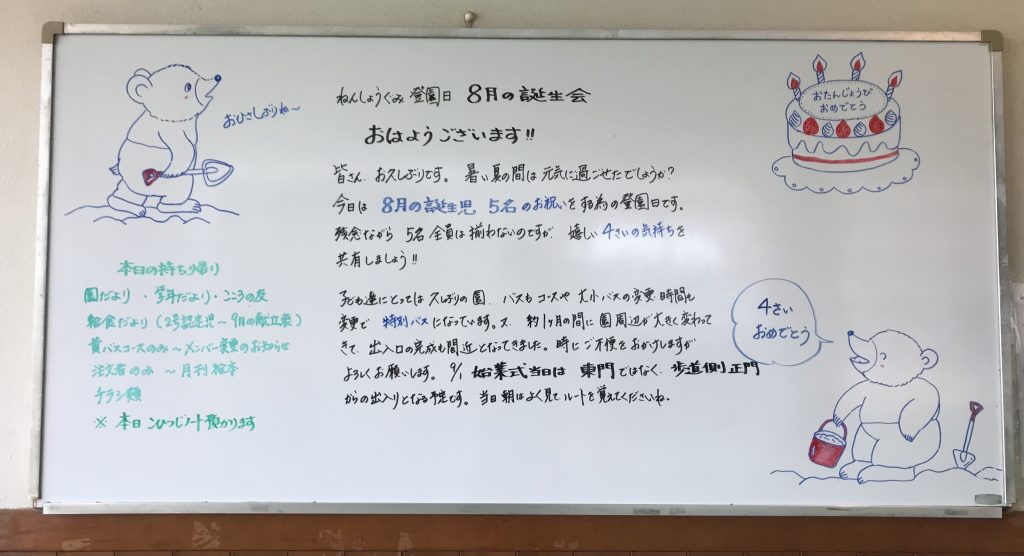 ねんしょうぐみ 登園日 8月の誕生会
おはようございます!!
おひさしぶりね~
おたんじょうび
おめでとう
皆さん、お久しぶりです。暑い夏の間は元気に過ごせたでしょうか?
今日は 8月の誕生児 5名のお祝いをする為の登園日です。
残念ながら 5名全員は揃わないのですが、嬉しい4さいの気持ちを
共有しましょう!!
本日の持ち帰り
園だより・学年だより・こころの友
給食だより(2号認定児~9月の献立表)
黄バスコースのみ~メンバー変更のお知らせ
注文者のみ ~月刊絵本
チラシ類
※ 本日 こひつじノート預かります
子ども達にとっては久しぶりの園、バスもコースや大小バスの変更、時間も
変更で 特別バスになっています。又、約1ヶ月の間に園周辺が大きく変わって
きて、出入口の完成も間近となってきました。時にご不便をおかけしますが
よろしくお願いします。9/1 始業式当日は 東門ではなく、歩道側正門
からの出入りとなる予定です。当日朝はよく見てルートを覚えてくださいね。
4さい
おめでとう